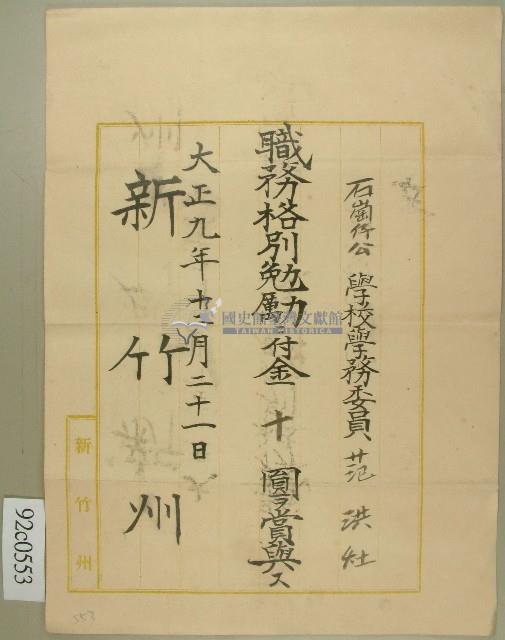 石崗仔公學校學務委員 范洪灶
職務格別勉勵ニ付金十圓ヲ賞與ス
大正九年十二月二十一日
新竹州
新竹州
國史館臺灣文獻館
TAIWAN HISTORICA
92c0553
553